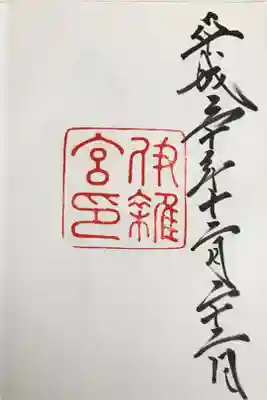 平成三十年十二月二十二日
伊雜
宮印